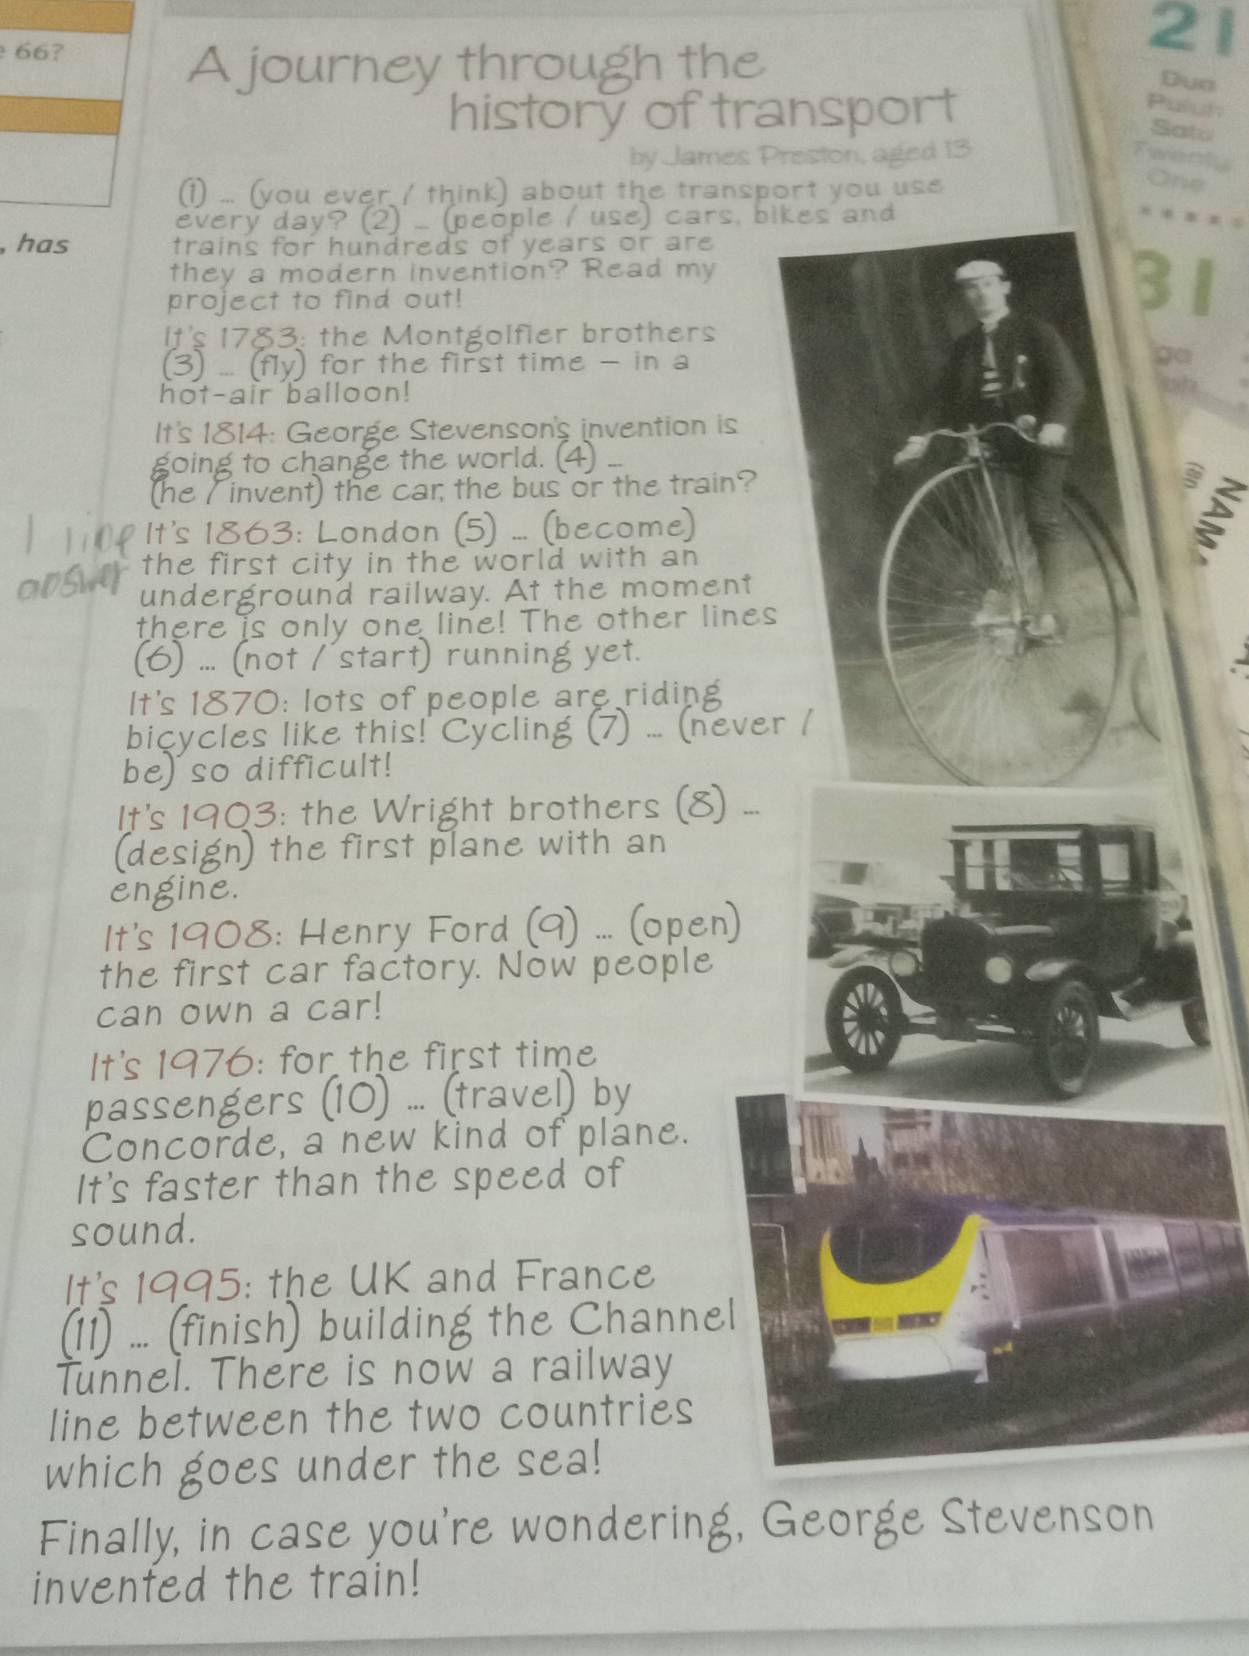 66?
, has
A journey through the
history of transport
by James Preston, aged 13
(1) ... (you ever / think) about the transport you use
every day? (2) ... (people / use) cars, bikes and
trains for hundreds of years or are
they a modern invention? Read my
project to find out!
It's 1783: the Montgolfier brothers
(3) ... (fly) for the first time – in a
hot-air balloon!
It's 1814: George Stevenson's invention is
going to change the world. (4) ...
(he / invent) the car, the bus or the train?
1 line
answer
It's 1863: London (5) ... (become)
the first city in the world with an
underground railway. At the moment
there is only one line! The other lines
(6) ... (not / start) running yet.
It's 1870: lots of people are riding
bicycles like this! Cycling (7) ... (never /
be) so difficult!
It's 1903: the Wright brothers (8) ...
(design) the first plane with an
engine.
It's 1908: Henry Ford (9) ... (open)
the first car factory. Now people
can own a car!
It's 1976: for the first time
passengers (10) ... (travel) by
Concorde, a new kind of plane.
It's faster than the speed of
sound.
It's 1995: the UK and France
(11) ... (finish) building the Channel
Tunnel. There is now a railway
line between the two countries
which goes under the sea!
Finally, in case you're wondering, George Stevenson
invented the train!
21
Dua
Puluh
Satu
Twenty
One
31
NAM